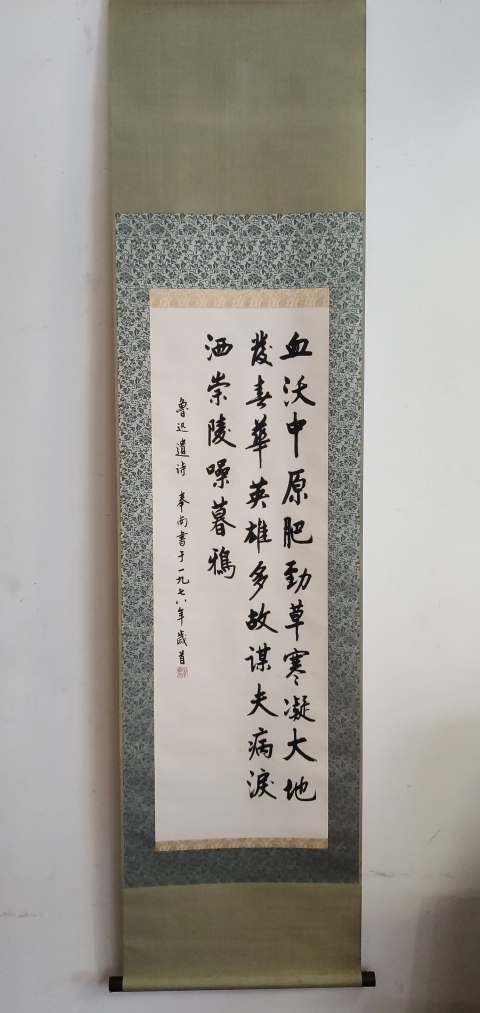 血沃中原肥劲草寒凝大地
发春華英雄多故谋夫病淚
洒崇陵噪暮鴉
魯迅遺诗 奉南書于一九七八年歲首